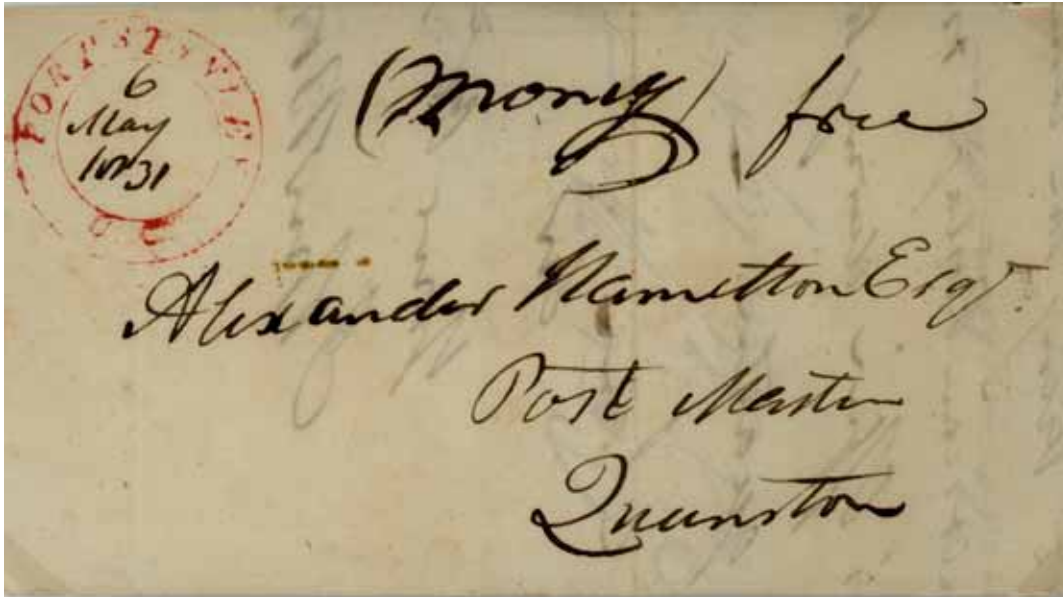 6
May
1831
(Money) free
Alexander Hamelton Esqr.
Post Master
Queenston